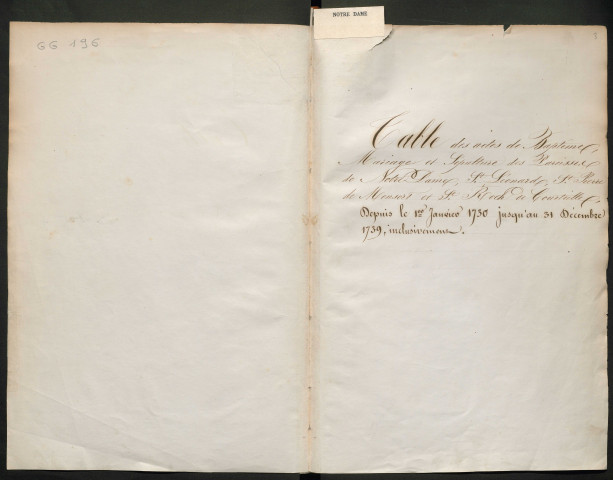 GG 196
NOTRE DAME
1
Table des actes de Baptême,
Mariage et Sépulture des Paroisses
de Notre Dame, St. Léonard, St. Pierre
de Monsort et St. Roch de Courteille,
Depuis le 1er Janvier 1730 jusqu'au 31 Décembre
1739, inclusivement.